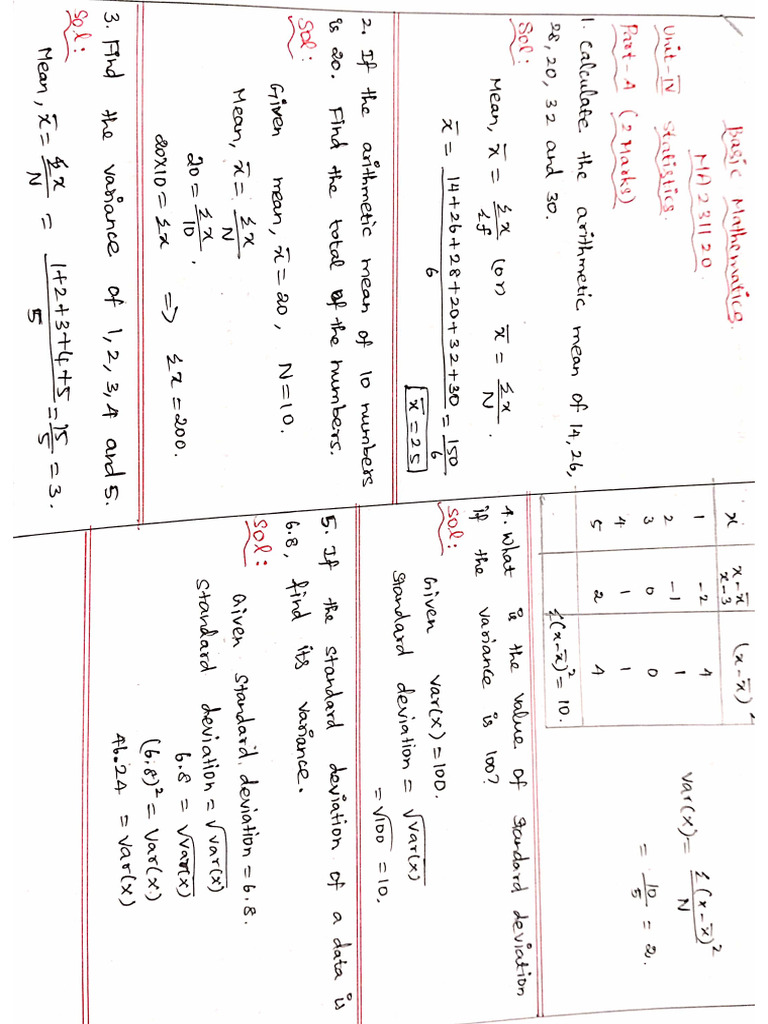 Basic Mathematics.
MA231120.
Unit-IV Statistics.
Part-A (2 Marks)
1. Calculate the arithmetic mean of 14, 26,
28, 20, 32 and 30.
Sol:
Mean, x̄ = Σx/Σf (or) x̄ = Σx/N.
x̄ = 14+26+28+20+32+30/6 = 150/6
x̄ = 25
2. If the arithmetic mean of 10 numbers
is 20. Find the total of the numbers.
Sol:
Given mean, x̄ = 20, N = 10.
Mean, x̄ = Σx/N
20 = Σx/10.
20x10 = Σx ⇒ Σx = 200.
3. Find the variance of 1, 2, 3, 4 and 5.
Sol:
Mean, x̄ = Σx/N = 1+2+3+4+5/5 = 15/5 = 3.
x x-x̄ (x-x̄)²
x-3
1 -2 4
2 -1 1
3 0 0
4 1 1
5 2 4
Σ(x-x̄)² = 10.
Var(x) = Σ(x-x̄)²/N
= 10/5 = 2.
4. What is the value of standard deviation
if the variance is 100?
Sol:
Given var(x) = 100.
Standard deviation = √var(x)
= √100 = 10.
5. If the standard deviation of a data is
6.8, find its variance.
Sol:
Given standard deviation = 6.8.
Standard deviation = √var(x)
6.8 = √var(x)
(6.8)² = Var(x)
46.24 = Var(x)